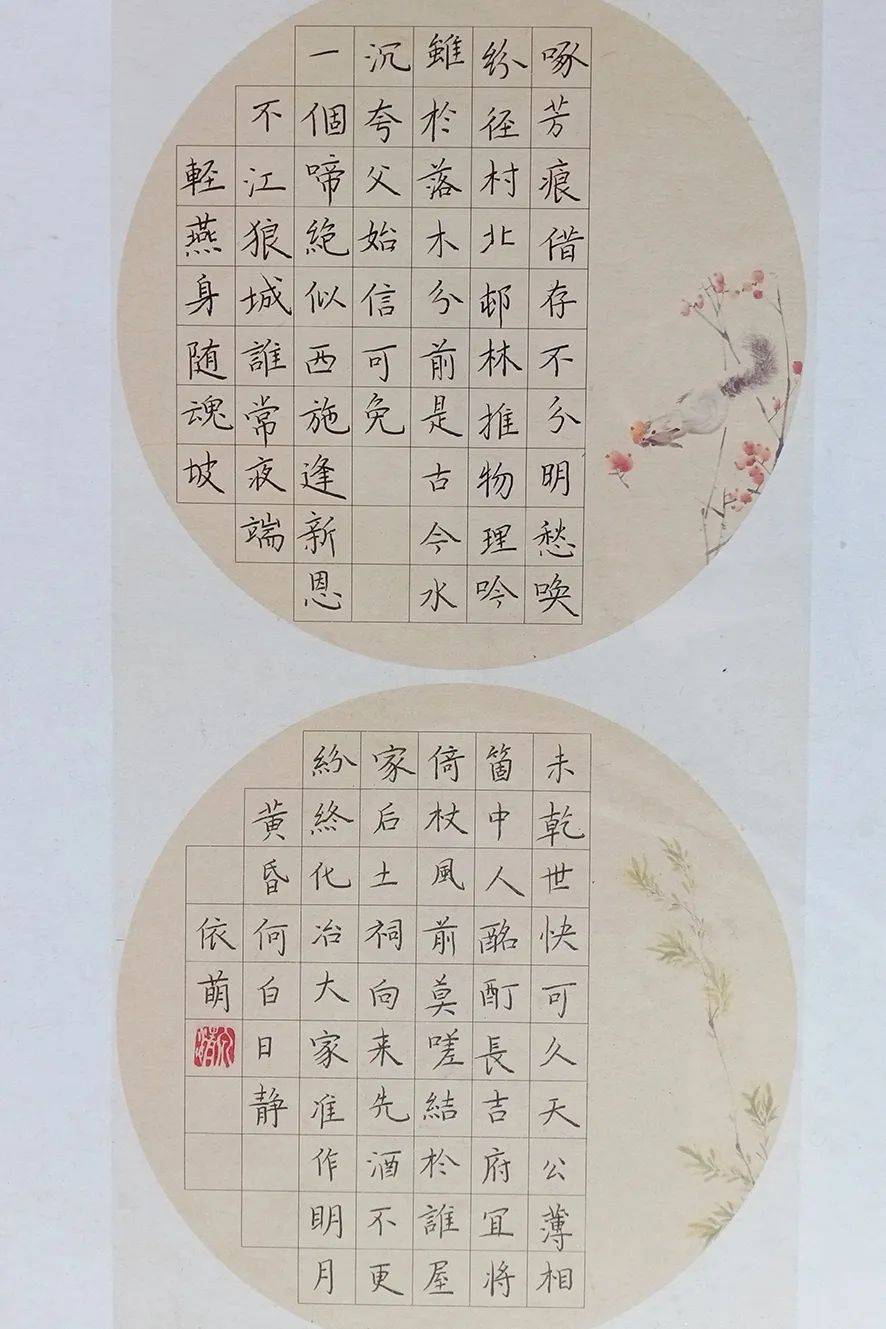 啄芳痕借存不分明愁喚
紛徑村北邨林推物理吟
雖於落木分前是古今水
沉夸父始信可免
一個啼絕似西施逢新恩
不江狼城誰常夜端
輕燕身随魂坡
未乾世快可久天公薄相
箇中人酩酊長吉府宜將
倚杖風前莫嗟結於誰屋
家后土祠向来先酒不更
紛終化冶大家准作明月
黃昏何白日静
依萌